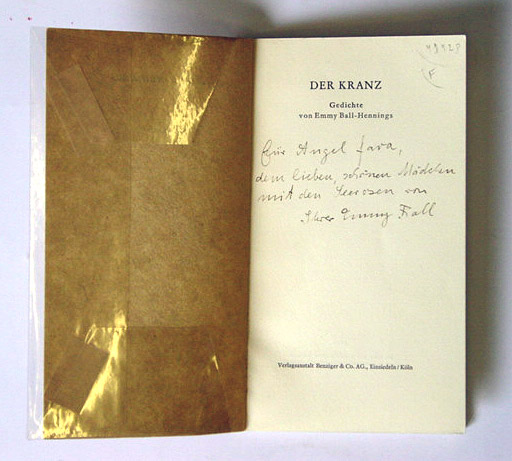 49428
F
DER KRANZ
Gedichte
von Emmy Ball-Hennings
Für Angel Jara,
dem lieben, schönen Mädchen
mit den Seerosen von
Ihrer Emmy Ball
Verlagsanstalt Benziger & Co. AG., Einsiedeln/Köln